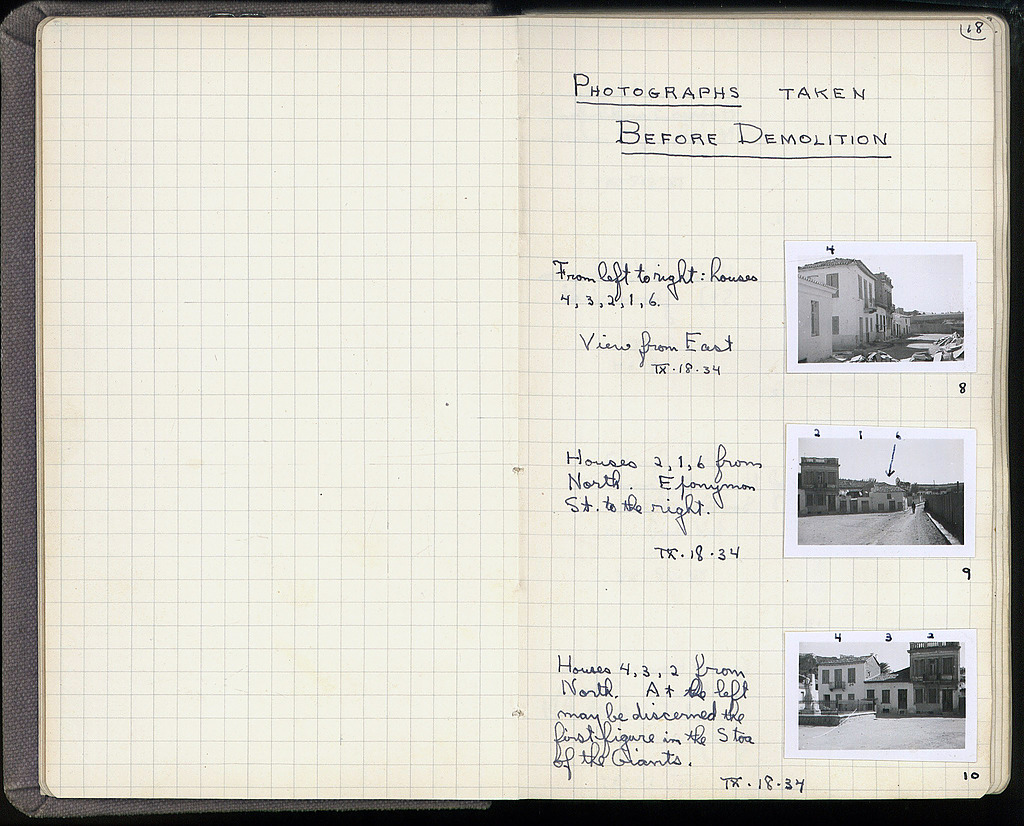 18
PHOTOGRAPHS TAKEN
BEFORE DEMOLITION
4
From left to right: houses
4, 3, 2, 1, 6.
View from East
IX·18·34
8
2 1 6
Houses 2, 1, 6 from
North. Eponymon
St. to the right.
IX·18·34
9
4 3 2
Houses 4, 3, 2 from
North. At the left
may be discerned the
first figure in the Stoa
of the Giants.
IX·18·34
10